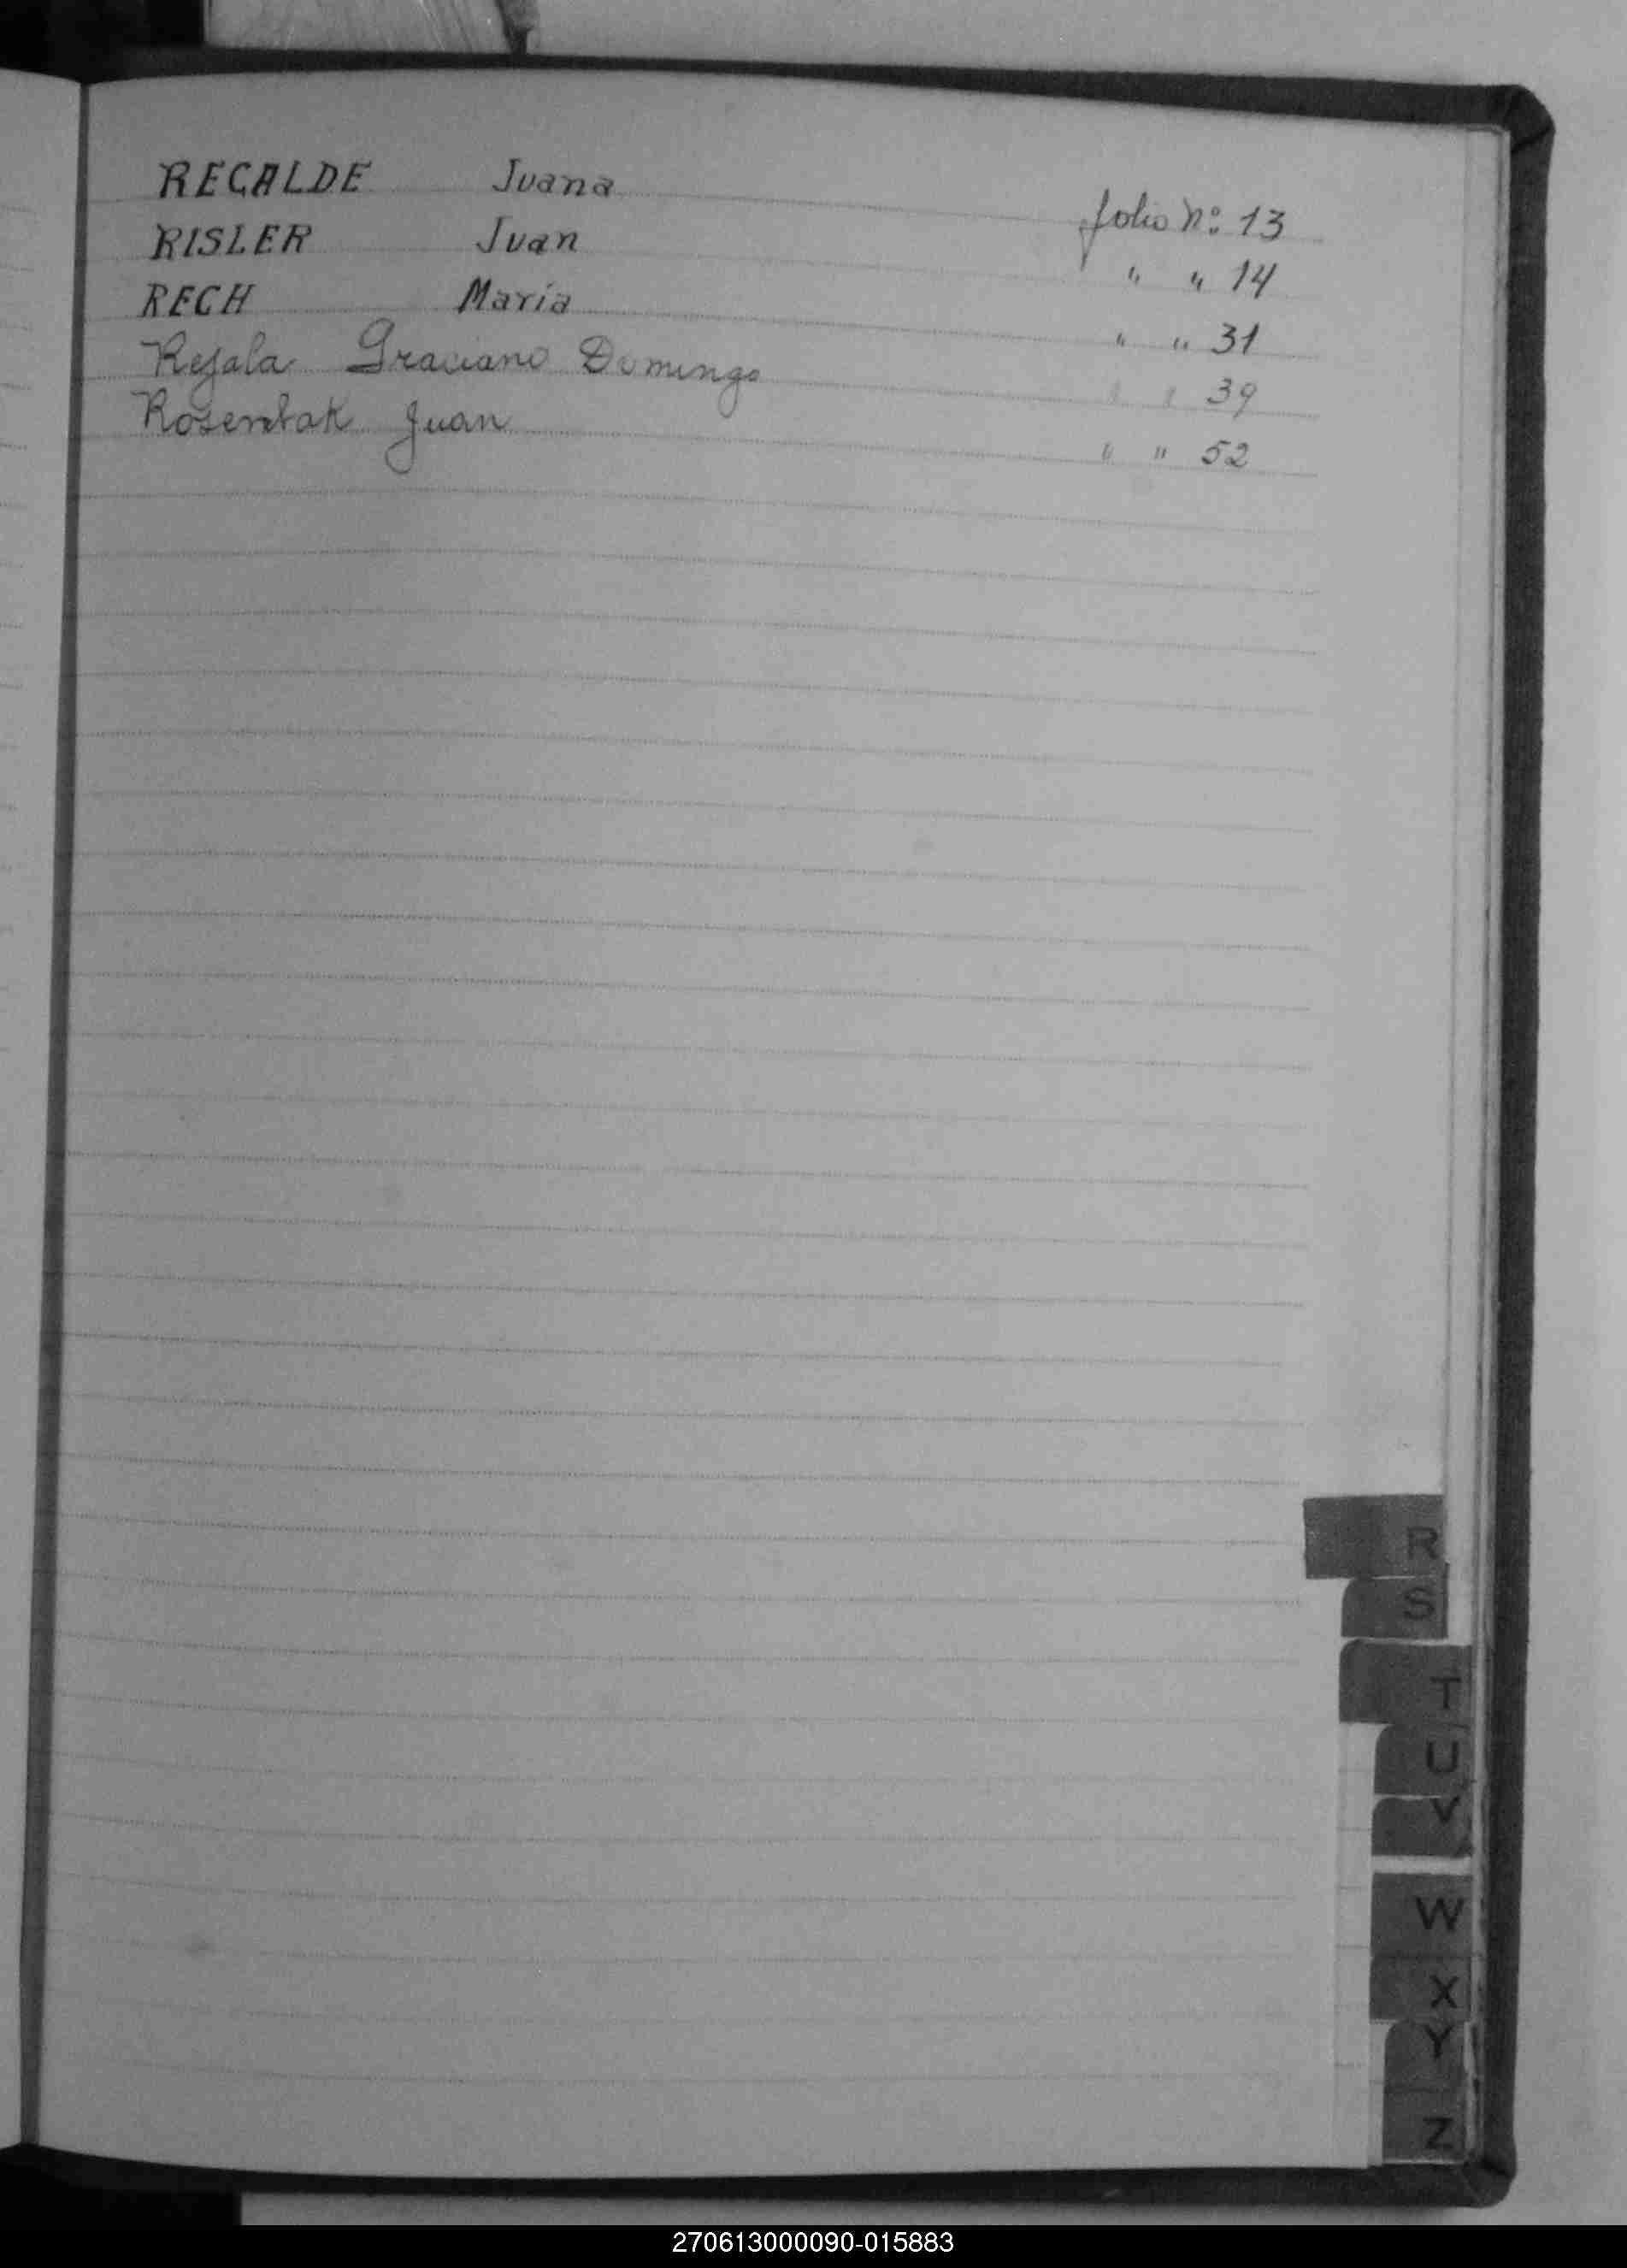 RECALDE Juana folio Nº 13
RISLER Juan " " 14
RECH María " " 31
Rejala Graciano Domingo " " 39
Juan " " 52
R
S
T
U
V
W
X
Y
Z
270613000090-015883